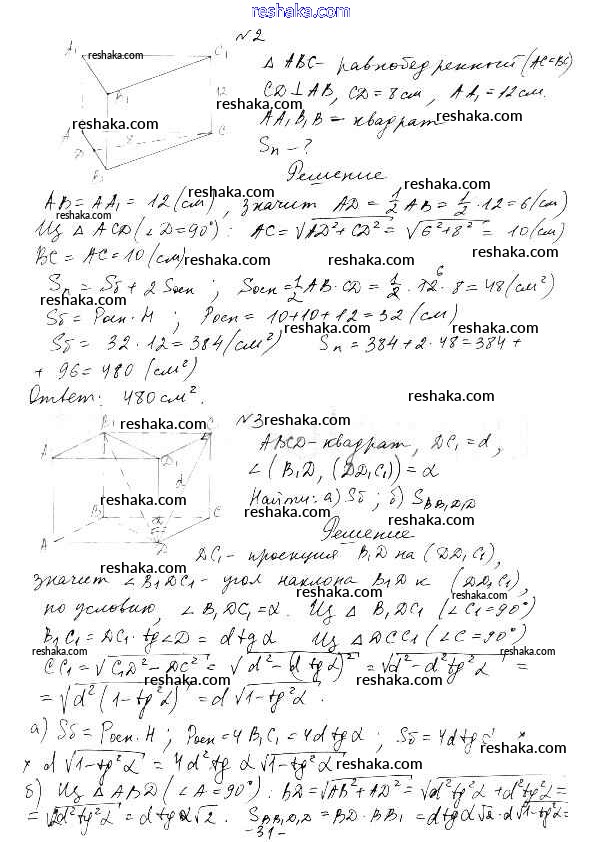 reshaka.com
№2
A₁ reshaka.com C₁
B₁
12
A C
D 8
B₁
Δ ABC - равнобедренный (AC=BC)
CD⊥AB, CD = 8 см, AA₁ = 12 см.
AA₁B₁B - квадрат
Sп - ?
Решение
AB = AA₁ = 12 (см), значит AD = 1/2 AB = 1/2 · 12 = 6 (см)
Из Δ ACD (∠D=90°): AC = √AD²+CD² = √6²+8² = 10 (см)
BC = AC = 10 (см)
Sп = Sб + 2 Sосн ; Sосн = 1/2 AB · CD = 1/2 · 12 · 8 = 48 (см²)
Sб = Pосн · H ; Pосн = 10+10+12 = 32 (см)
Sб = 32 · 12 = 384 (см²) Sп = 384 + 2 · 48 = 384 +
+ 96 = 480 (см²)
Ответ: 480 см².
№3 reshaka.com
B₁ C
A D₁
d
B α C
A D
ABCD - квадрат, DC₁ = d,
∠(B₁D, (DD₁C₁)) = α
Найти: а) Sб ; б) S BB₁D₁D
Решение
DC₁ - проекция B₁D на (DD₁C₁),
значит ∠B₁DC₁ - угол наклона B₁D к (DD₁C₁),
по условию, ∠B₁DC₁ = α. Из Δ B₁DC₁ (∠C₁=90°)
B₁C₁ = DC₁ · tg∠D = d tg α Из Δ DCC₁ (∠C=90°)
CC₁ = √C₁D² - DC² = √d² - (d tg α)² = √d² - d² tg² α =
= √d² (1 - tg² α) = d √1 - tg² α.
а) Sб = Pосн · H ; Pосн = 4 B₁C₁ = 4d tg α ; Sб = 4d tg α ×
× d √1 - tg² α = 4d² tg α √1 - tg² α
б) Из Δ ABD (∠A=90°): BD = √AB² + AD² = √d² tg² α + d² tg² α =
= √2d² tg² α = d tg α √2. S BB₁D₁D = BD · BB₁ = d tg α √2 · d √1 - tg² α =
-31-